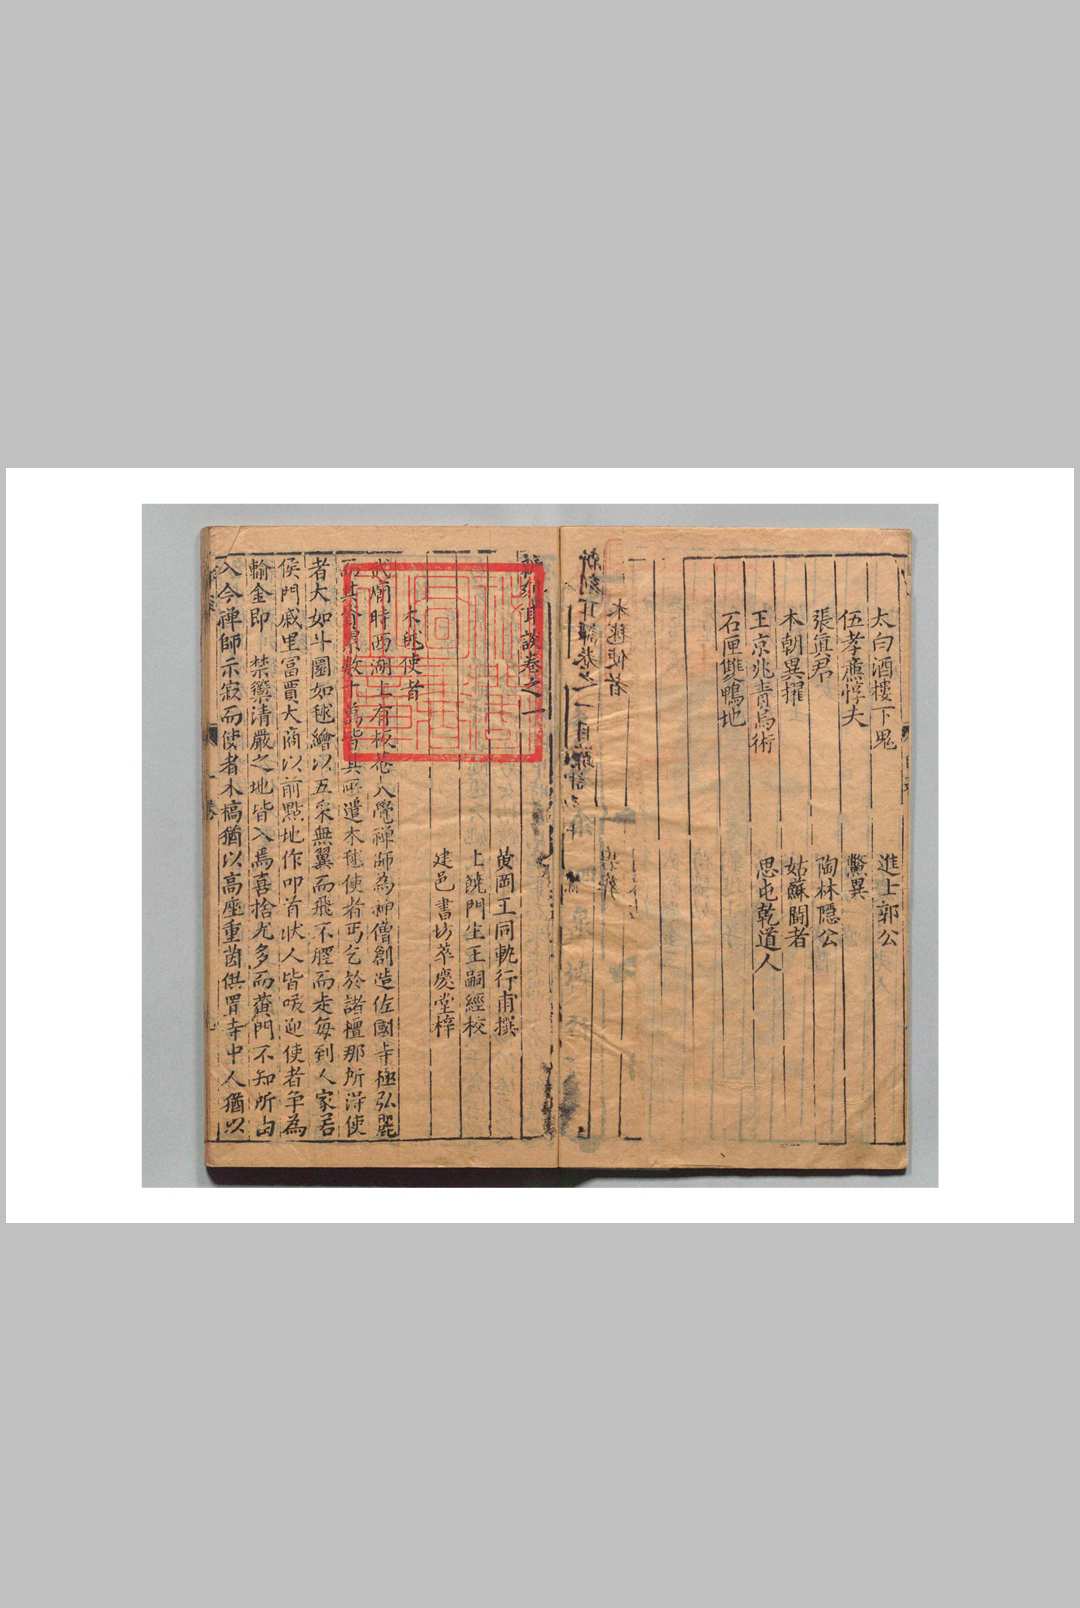 太白酒樓下鬼
進士郭公
伍孝廉悖夫
鱉異
張眞君
陶林隱公
本朝異擢
姑蘇鬪者
王京兆青烏術
思屯乾道人
石匣雙鴨地
新刻耳談卷之一
黄岡王同軌行甫撰
上饒門生王嗣經校
建邑書坊萃慶堂梓
木毬使者
武廟時西湖上有板菴大覺禪師為神僧創造佐國寺極弘麗
數十萬皆其所遣木毬使者丐乞於諸檀那所得使
者大如斗圓如毬繪以五采無翼而飛不脛而走每到人家若
侯門戚里富賈大商以前點地作叩首狀人皆喧迎使者爭為
輸金即 禁籞清嚴之地皆入焉喜捨尤多而黃門不知所由
入今禪師示寂而使者木槁猶以高座重茵供置寺中人猶以